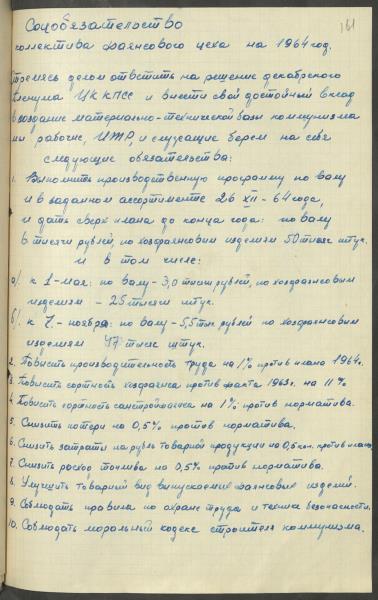 161
Соцобязательство
коллектива фаянсового цеха на 1964 год.
Стремясь делом ответить на решение декабрского
Пленума ЦК КПСС и внести свой достойный вклад
в создание материально-технической базы коммунизма
мы рабочие, ИТР, и служащие берем на себя
следующие обязательства:
1. Выполнить производственную программу по валу
и в заданном ассортименте 26 XII - 64 года,
и дать сверх плана до конца года: по валу
6 тысяч рублей, по хозфаянсовым изделиям 50 тысяч штук.
и в том числе:
а/. к 1-мая: по валу - 3,0 тысяч рублей, по хозфаянсовым
изделиям - 25 тысячи штук.
б/. к 7.- ноября: по валу - 5,5 тыс рублей по хозфаянсовым
изделиям 47 тысяч штук.
2. Повысить производительность труда на 1% против плана 1964г.
3. Повысить сортность хозфаянса против факта 1963г. на 11%
4. Повысить сортность санстройфаянса на 1% против норматива.
5. Снизить потери на 0,5% против норматива.
6. Снизить затраты на рубль товарной продукции на 0,5 коп. против плана.
7. Снизить расход топлива на 0,5% против норматива.
8. Улучшить товарный вид выпускаемых фаянсовых изделий.
9. Соблюдать правила по охране труда и техника безопасности.
10. Соблюдать моральный кодекс строителя коммунизма.